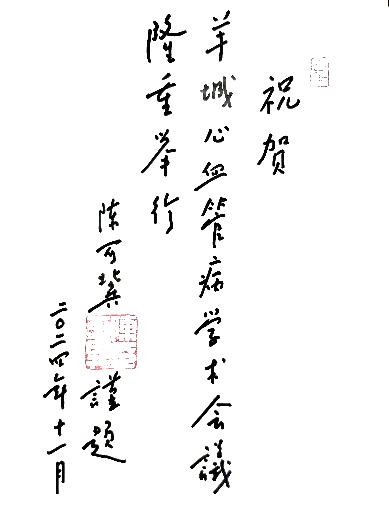 祝贺
羊城心血管病学术会議
隆重举行
陈可冀
謹题
二〇二四年十一月